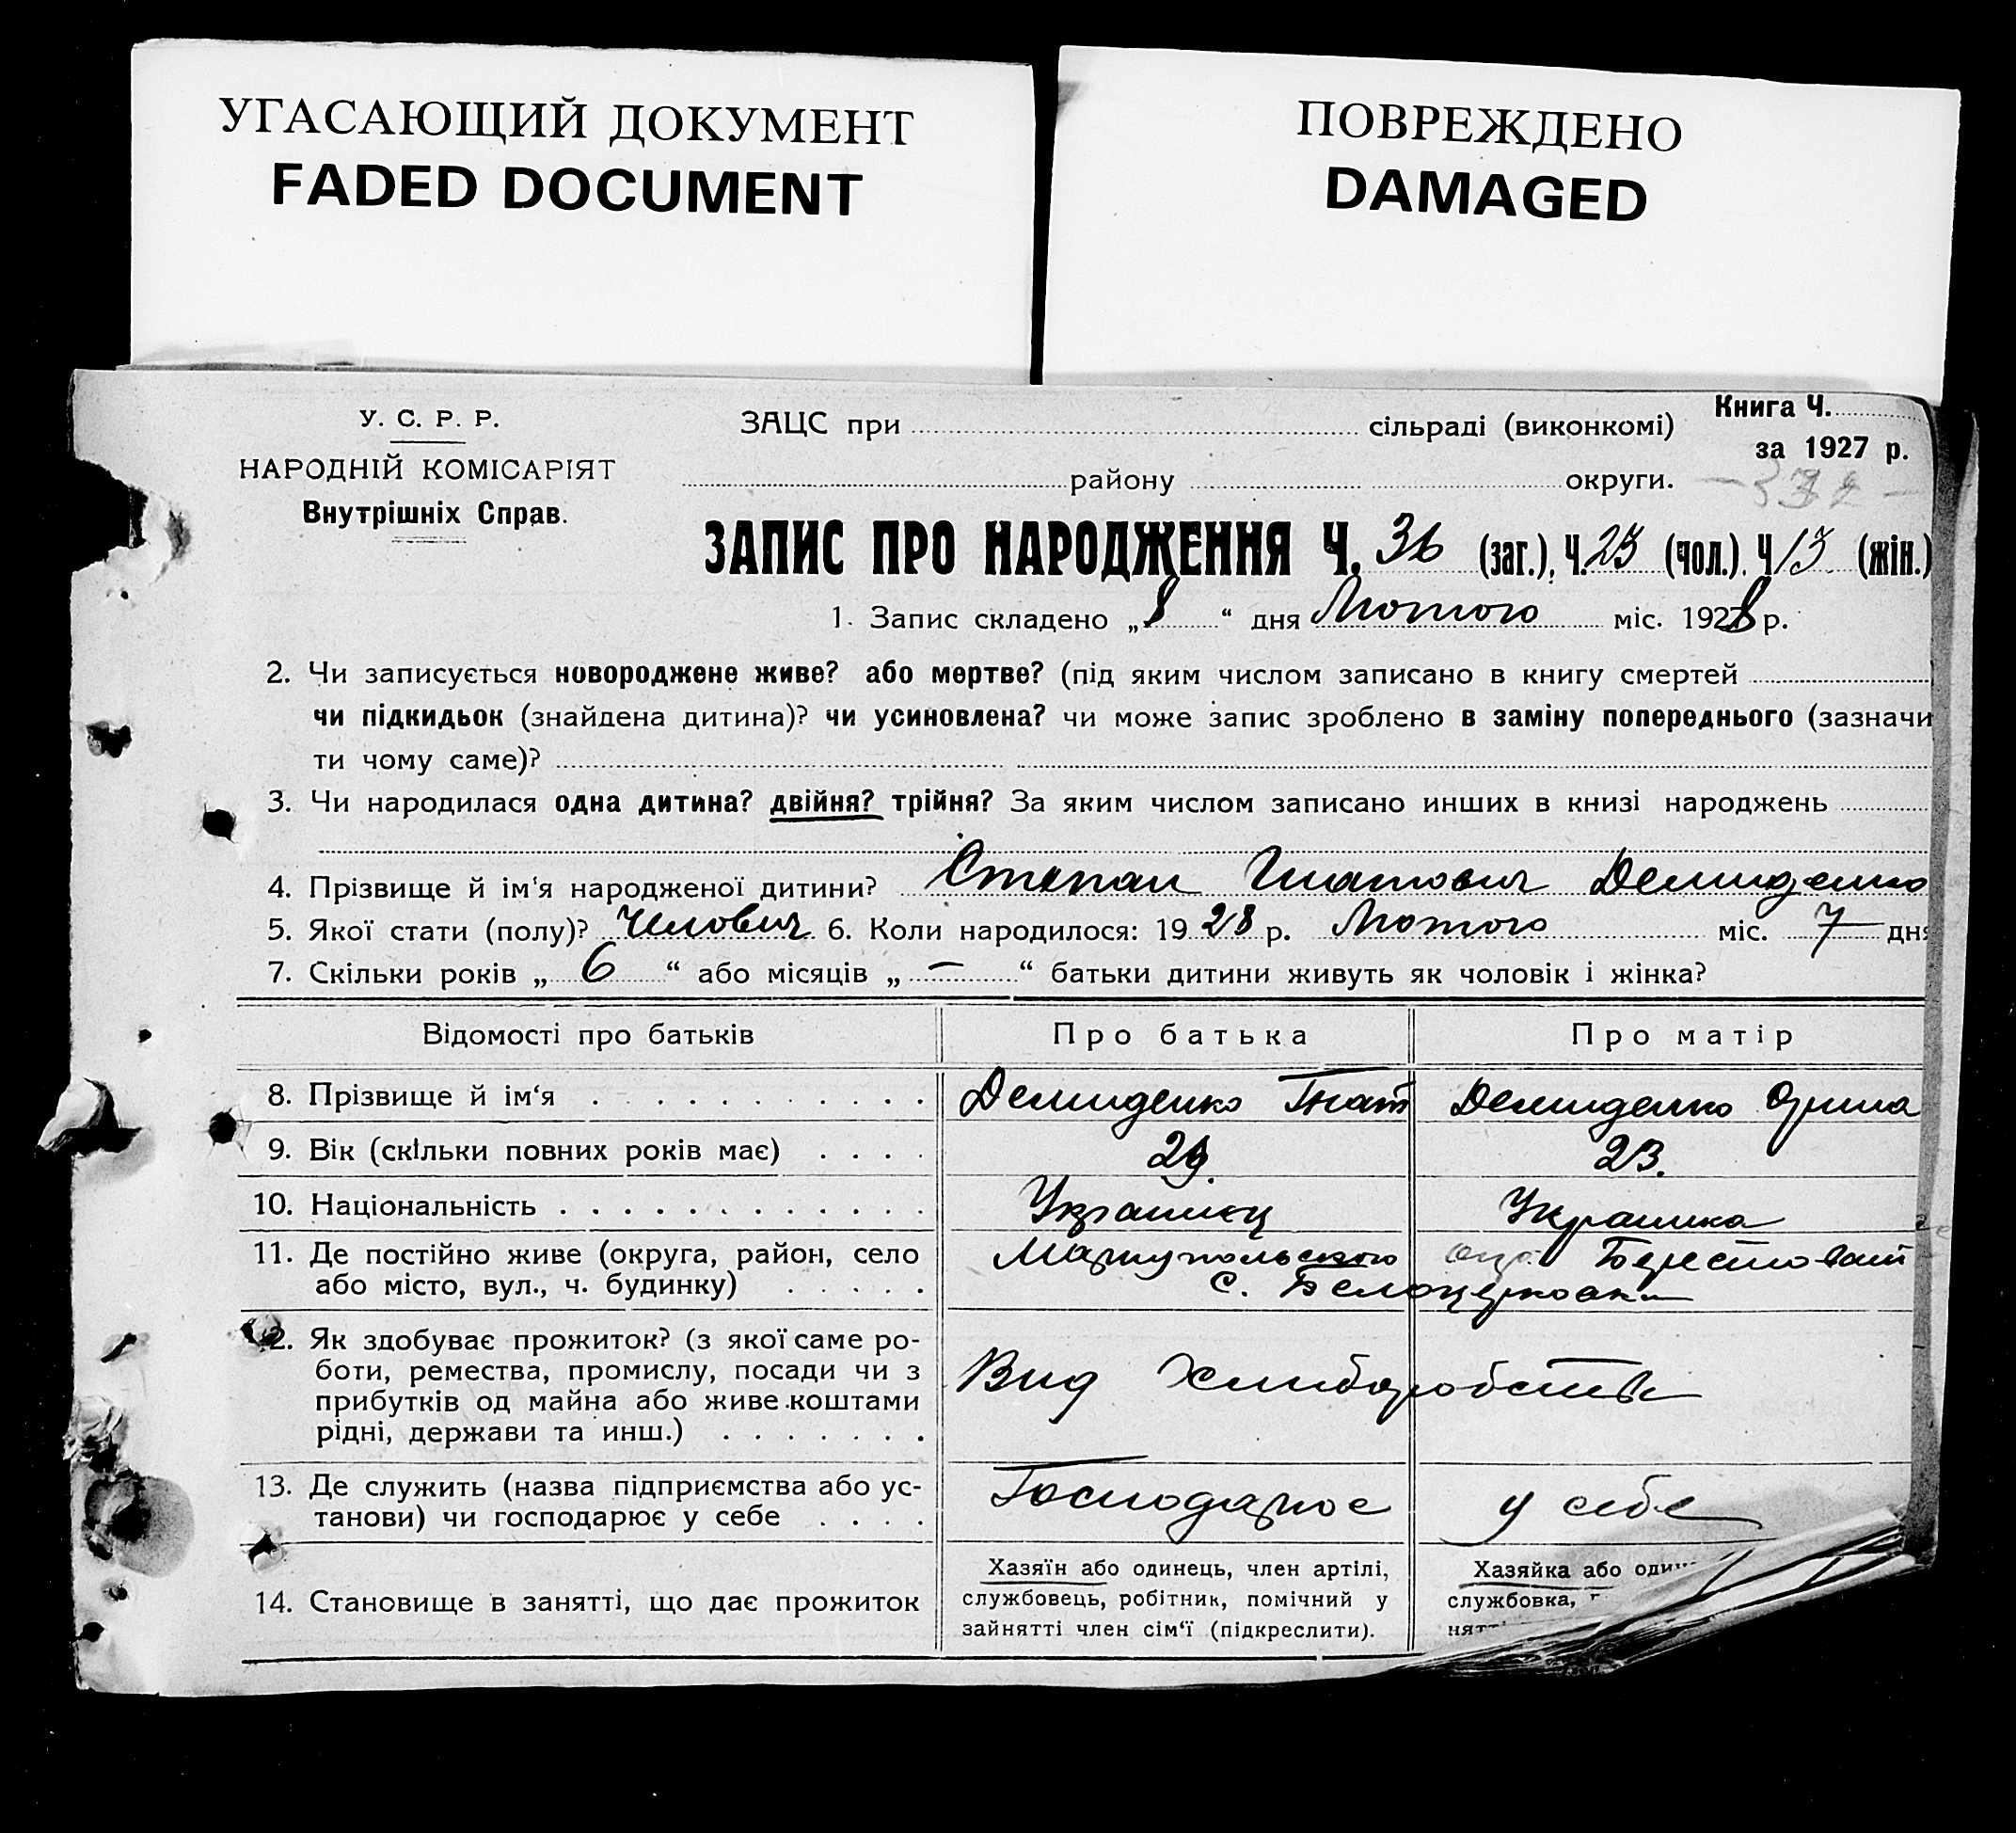 УГАСАЮЩИЙ ДОКУМЕНТ
FADED DOCUMENT
ПОВРЕЖДЕНО
DAMAGED
У. С. Р. Р.
НАРОДНІЙ КОМІСАРІЯТ
Внутрішніх Справ.
ЗАЦС при сільраді (виконкомі)
Книга Ч.
за 1927 р.
району округи.
ЗАПИС ПРО НАРОДЖЕННЯ Ч. 36 (заг.), Ч. 23 (чол.), Ч 13 (жін.)
1. Запис складено „8“ дня Лютого міс. 1928 р.
2. Чи записується новороджене живе? або мертве? (під яким числом записано в книгу смертей
чи підкидьок (знайдена дитина)? чи усиновлена? чи може запис зроблено в заміну попереднього (зазначи
ти чому саме)?
3. Чи народилася одна дитина? двійня? трійня? За яким числом записано инших в книзі народжень
4. Прізвище й ім'я народженої дитини? Степан Гнатович Демиденко
5. Якої стати (полу)? Челович 6. Коли народилося: 1928 р. Лютого міс. 7 дня
7. Скільки років „6“ або місяців „—“ батьки дитини живуть як чоловік і жінка?
Відомості про батьків Про батька Про матір
8. Прізвище й ім'я Демиденко Гнат Демиденко Орина
9. Вік (скільки повних років має) 29. 23.
10. Національність Українец Українка
11. Де постійно живе (округа, район, село Мариупольского окр.
або місто, вул., ч. будинку) с. Белоцерковка
12. Як здобуває прожиток? (з якої саме ро-
боти, ремества, промислу, посади чи з
прибутків од майна або живе коштами
рідні, держави та инш.)
Вид Хлиборобства
13. Де служить (назва підприємства або ус-
танови) чи господарює у себе
Господарює у себе
14. Становище в занятті, що дає прожиток
Хазяїн або одинець, член артілі,
службовець, робітник, помічний у
зайнятті член сім'ї (підкреслити).
Хазяйка або один
службовка,
нятт